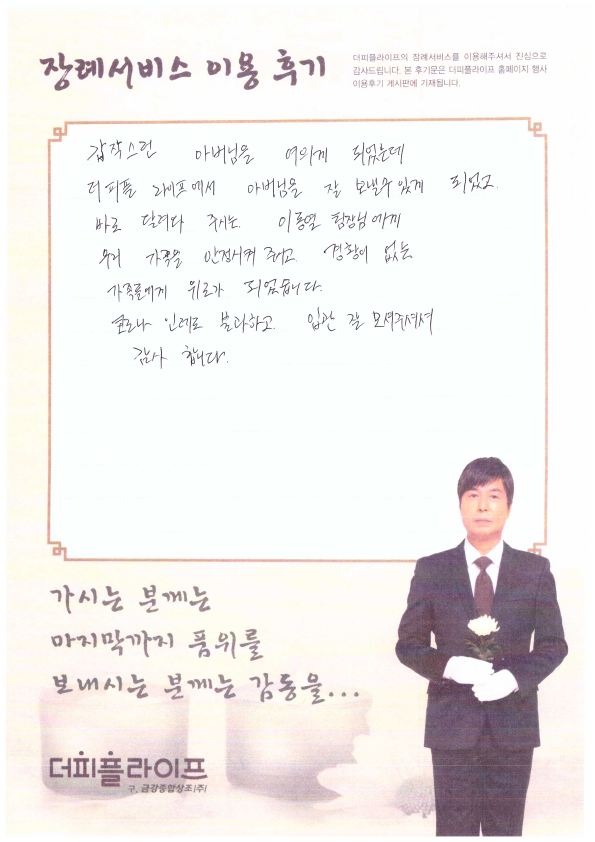 장례서비스 이용 후기
더피플라이프의 장례서비스를 이용해주셔서 진심으로
감사드립니다. 본 후기문은 더피플라이프 홈페이지 행사
이용후기 게시판에 기재됩니다.
갑작스런 아버님을 여의게 되었는데
더피플 라이프에서 아버님을 잘 보낼수 있게 되었고.
바로 달려와 주시는. 이동열 팀장님에게
우리 가족을 안정시켜 주시고. 경황이 없는
가족들에게 위로가 되었습니다.
코로나 인데도 불구하고. 입관 잘 모셔주셔서
감사 합니다.
가시는 분께는
마지막까지 품위를
보내시는 분께는 감동을...
더피플라이프
구. 금강종합상조(주)